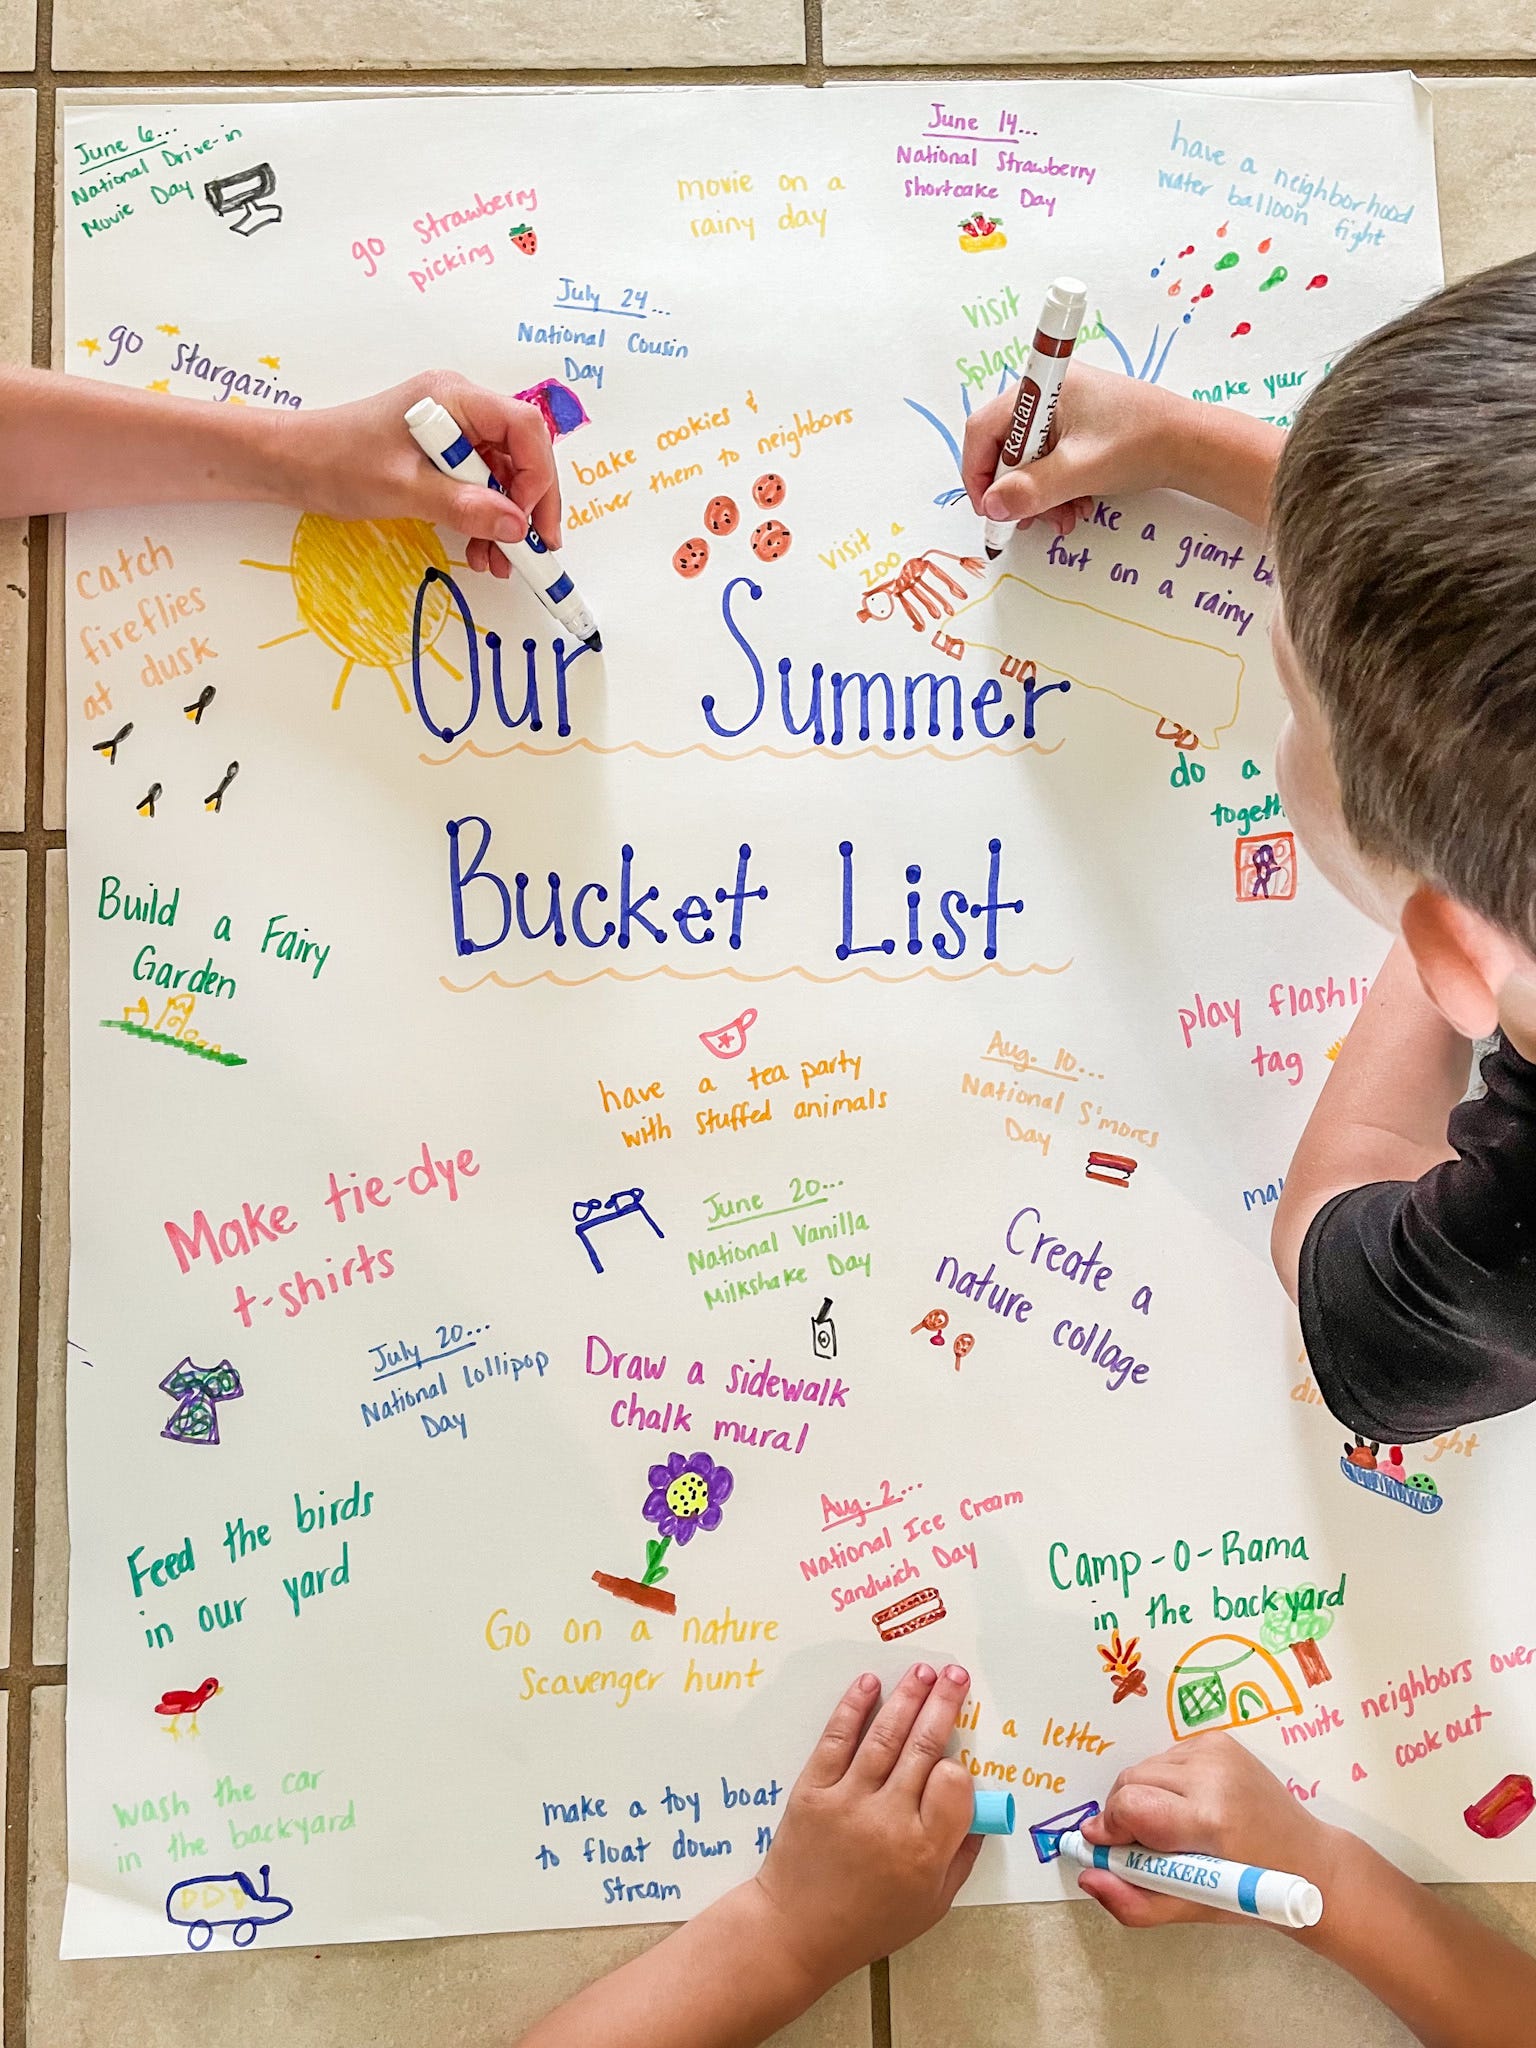 June 6...
National Drive-in
Movie Day
go strawberry
picking
movie on a
rainy day
June 14...
National Strawberry
Shortcake Day
have a neighborhood
water balloon fight
go stargazing
July 24...
National Cousin
Day
visit
make your
bake cookies &
deliver them to neighbors
Karlan
visit a
zoo
a giant
fort on a rainy
catch
fireflies
at dusk
Our Summer
Bucket List
do a
Build a Fairy
Garden
play
tag
have a tea party
with stuffed animals
Aug. 10...
National S'mores
Day
Make tie-dye
t-shirts
June 20...
National Vanilla
Milkshake Day
Create a
nature collage
July 20...
National Lollipop
Day
Draw a sidewalk
chalk mural
Feed the birds
in our yard
Aug. 2...
National Ice Cream
Sandwich Day
Go on a nature
Scavenger hunt
Camp-O-Rama
in the backyard
a letter
someone
invite neighbors over
for a cookout
wash the car
in the backyard
make a toy boat
to float down
stream
MARKERS